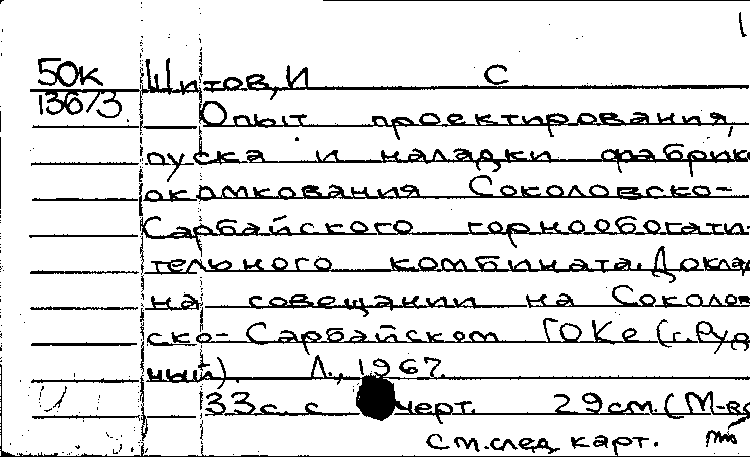 1
50к Шитов, И С
136/3 Опыт проектирования,
пуска и наладки фабрик
окомкования Соколовско-
Сарбайского горнообогати-
тельного комбината. Доклад
на совещании на Соколов
ско- Сарбайском ГОКе (г. Руд
ный). Л., 1967.
33с. с черт. 29см. (М-во
см. след карт.